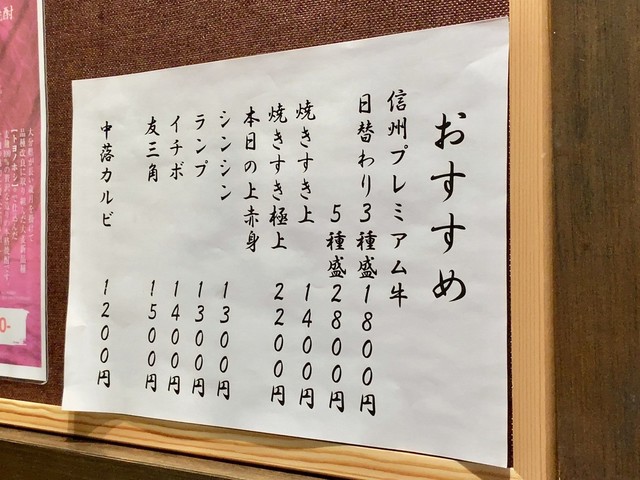 おすすめ
信州プレミアム牛
日替わり3種盛1800円
5種盛2800円
焼きすき上 1400円
焼きすき極上 2200円
本日の上赤身
シンシン 1300円
ランプ 1300円
イチボ 1400円
友三角 1500円
中落カルビ 1200円
大分郡が長い歳月を掛けて
【トヨノホシ】
0-